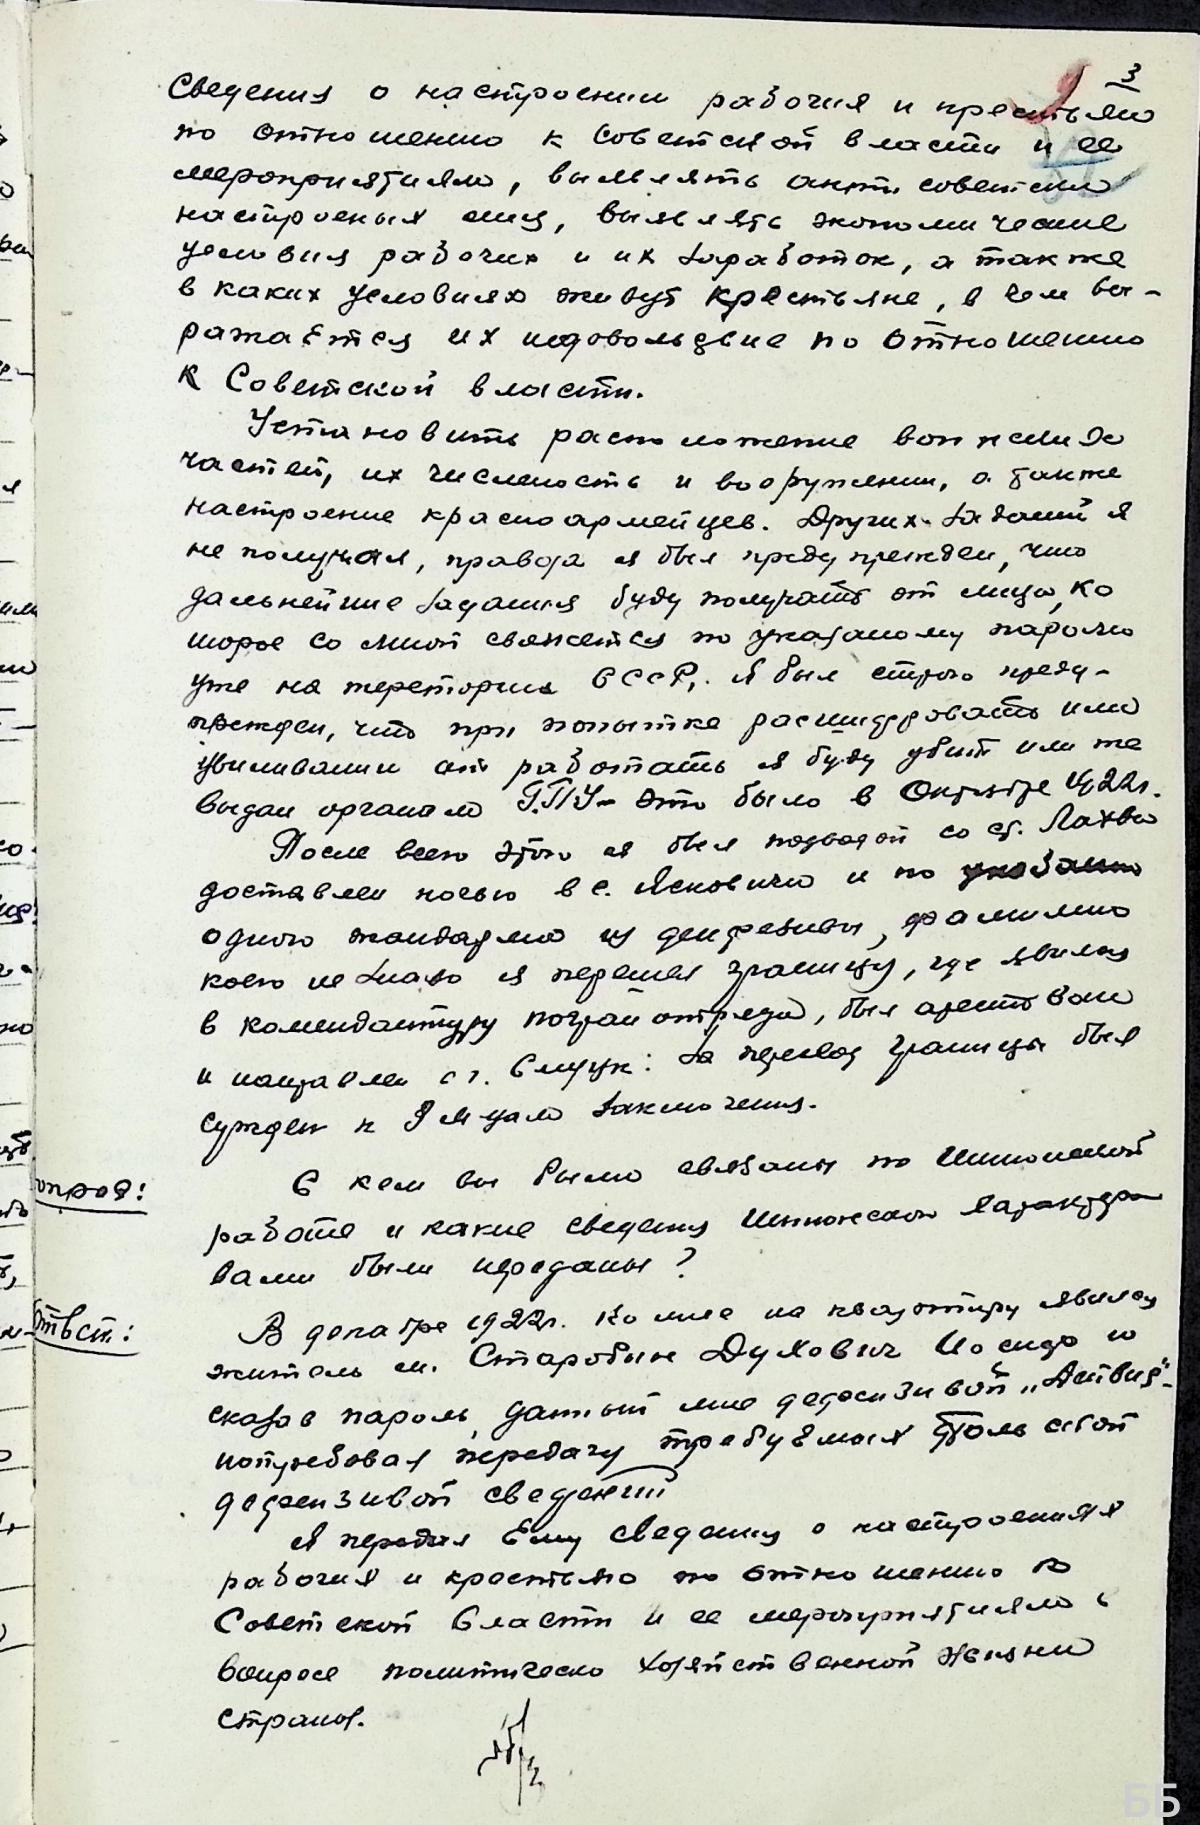 3
Сведения о настроении рабочих и крестьян
по отношению к Советской власти и ее
мероприятиям, выявлять анти советски
настроеных лиц, выявлять экономические
условия рабочих и их заработок, а также
в каких условиях живут крестьяне, в чем вы-
ражается их недовольдвие по отношению
к Советской власти.
Установить расположение воинских
частей, их численость и вооружении, а также
настроение красноармейцев. Других заданий я
не получал, правда я был предупрежден, что
дальнейшие задания буду получать от лица, ко
торое со мной свяжется по указаному паролю
уже на територии СССР. Я был строго преду-
прежден, что при попытке расшифровать или
увиливании от работать я буду убит или же
выдан органам Г.П.У- это было в Октябре 1922г.
После всего этого я был подводой со ст. Лахва
доставлен ночью в с. Ясковичи и по
одного жандарма из дефензивы, фамилию
коего не знаю я перешел границу, где явился
в комендатуру погран отряда, был арестован
и направлен в г. Слуцк: За переход границы был
сужден к 8 м-цам заключения.
опрос: С кем вы были связаны по Шпионской
работе и какие сведения Шпионского характера
вами были переданы?
Ответ: В декабре 1922г. ко мне на квартиру явился
житель м. Старобин Духович Иосиф и
сказав пароль данный мне дефензивой „Литвия"-
потребовал передачу требуемых польской
дефензивой сведений
Я передал Ему сведения о настроениях
рабочих и крестьян по отношению к
Советской власти и ее мероприятиям в
вопросе политическо хозяйственной жизни
страны.
ББ